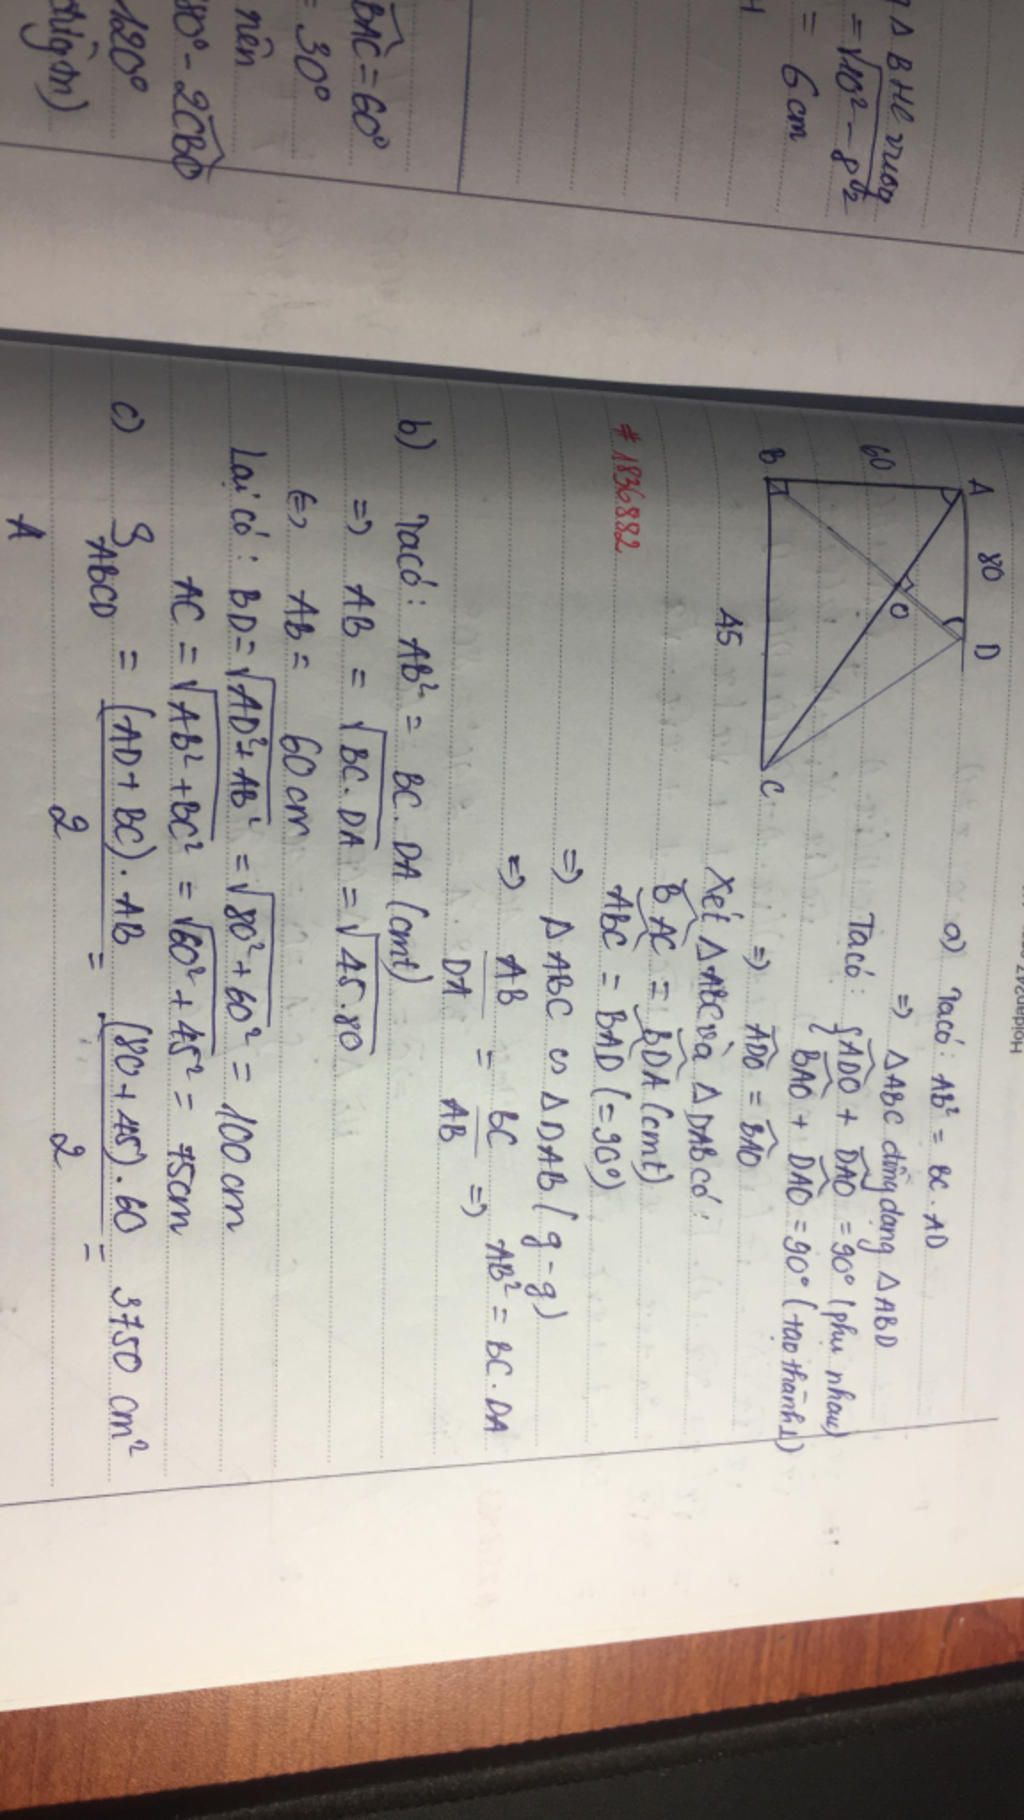 Δ BHC vuog
= √10² - 8²
= 6 cm
H
BAC = 60°
= 30°
nên
80° - 2CBO
120°
A 80 D
60
O
B C
45
#1836882
a) Tacó: AB² = BC.AD
=> ΔABC đồng dạng ΔABD
Tacó: { ADO + DAO = 90° (phụ nhau)
BAO + DAO = 90° (tạo thành ⊥)
=> ADO = BAO
Xét ΔABC và ΔDAB có:
BAC = BDA (cmt)
ABC = BAD (=90°)
=> ΔABC ∽ ΔDAB (g-g)
=> AB/DA = BC/AB => AB² = BC.DA
b) Tacó: AB² = BC.DA (cmt)
=> AB = √BC.DA = √45.80
⇔ AB = 60cm
Lại có: BD = √AD²+AB² = √80²+60² = 100cm
AC = √AB²+BC² = √60²+45² = 75cm
c) S ABCD = (AD+BC).AB / 2 = (80+45).60 / 2 = 3750 cm²
A